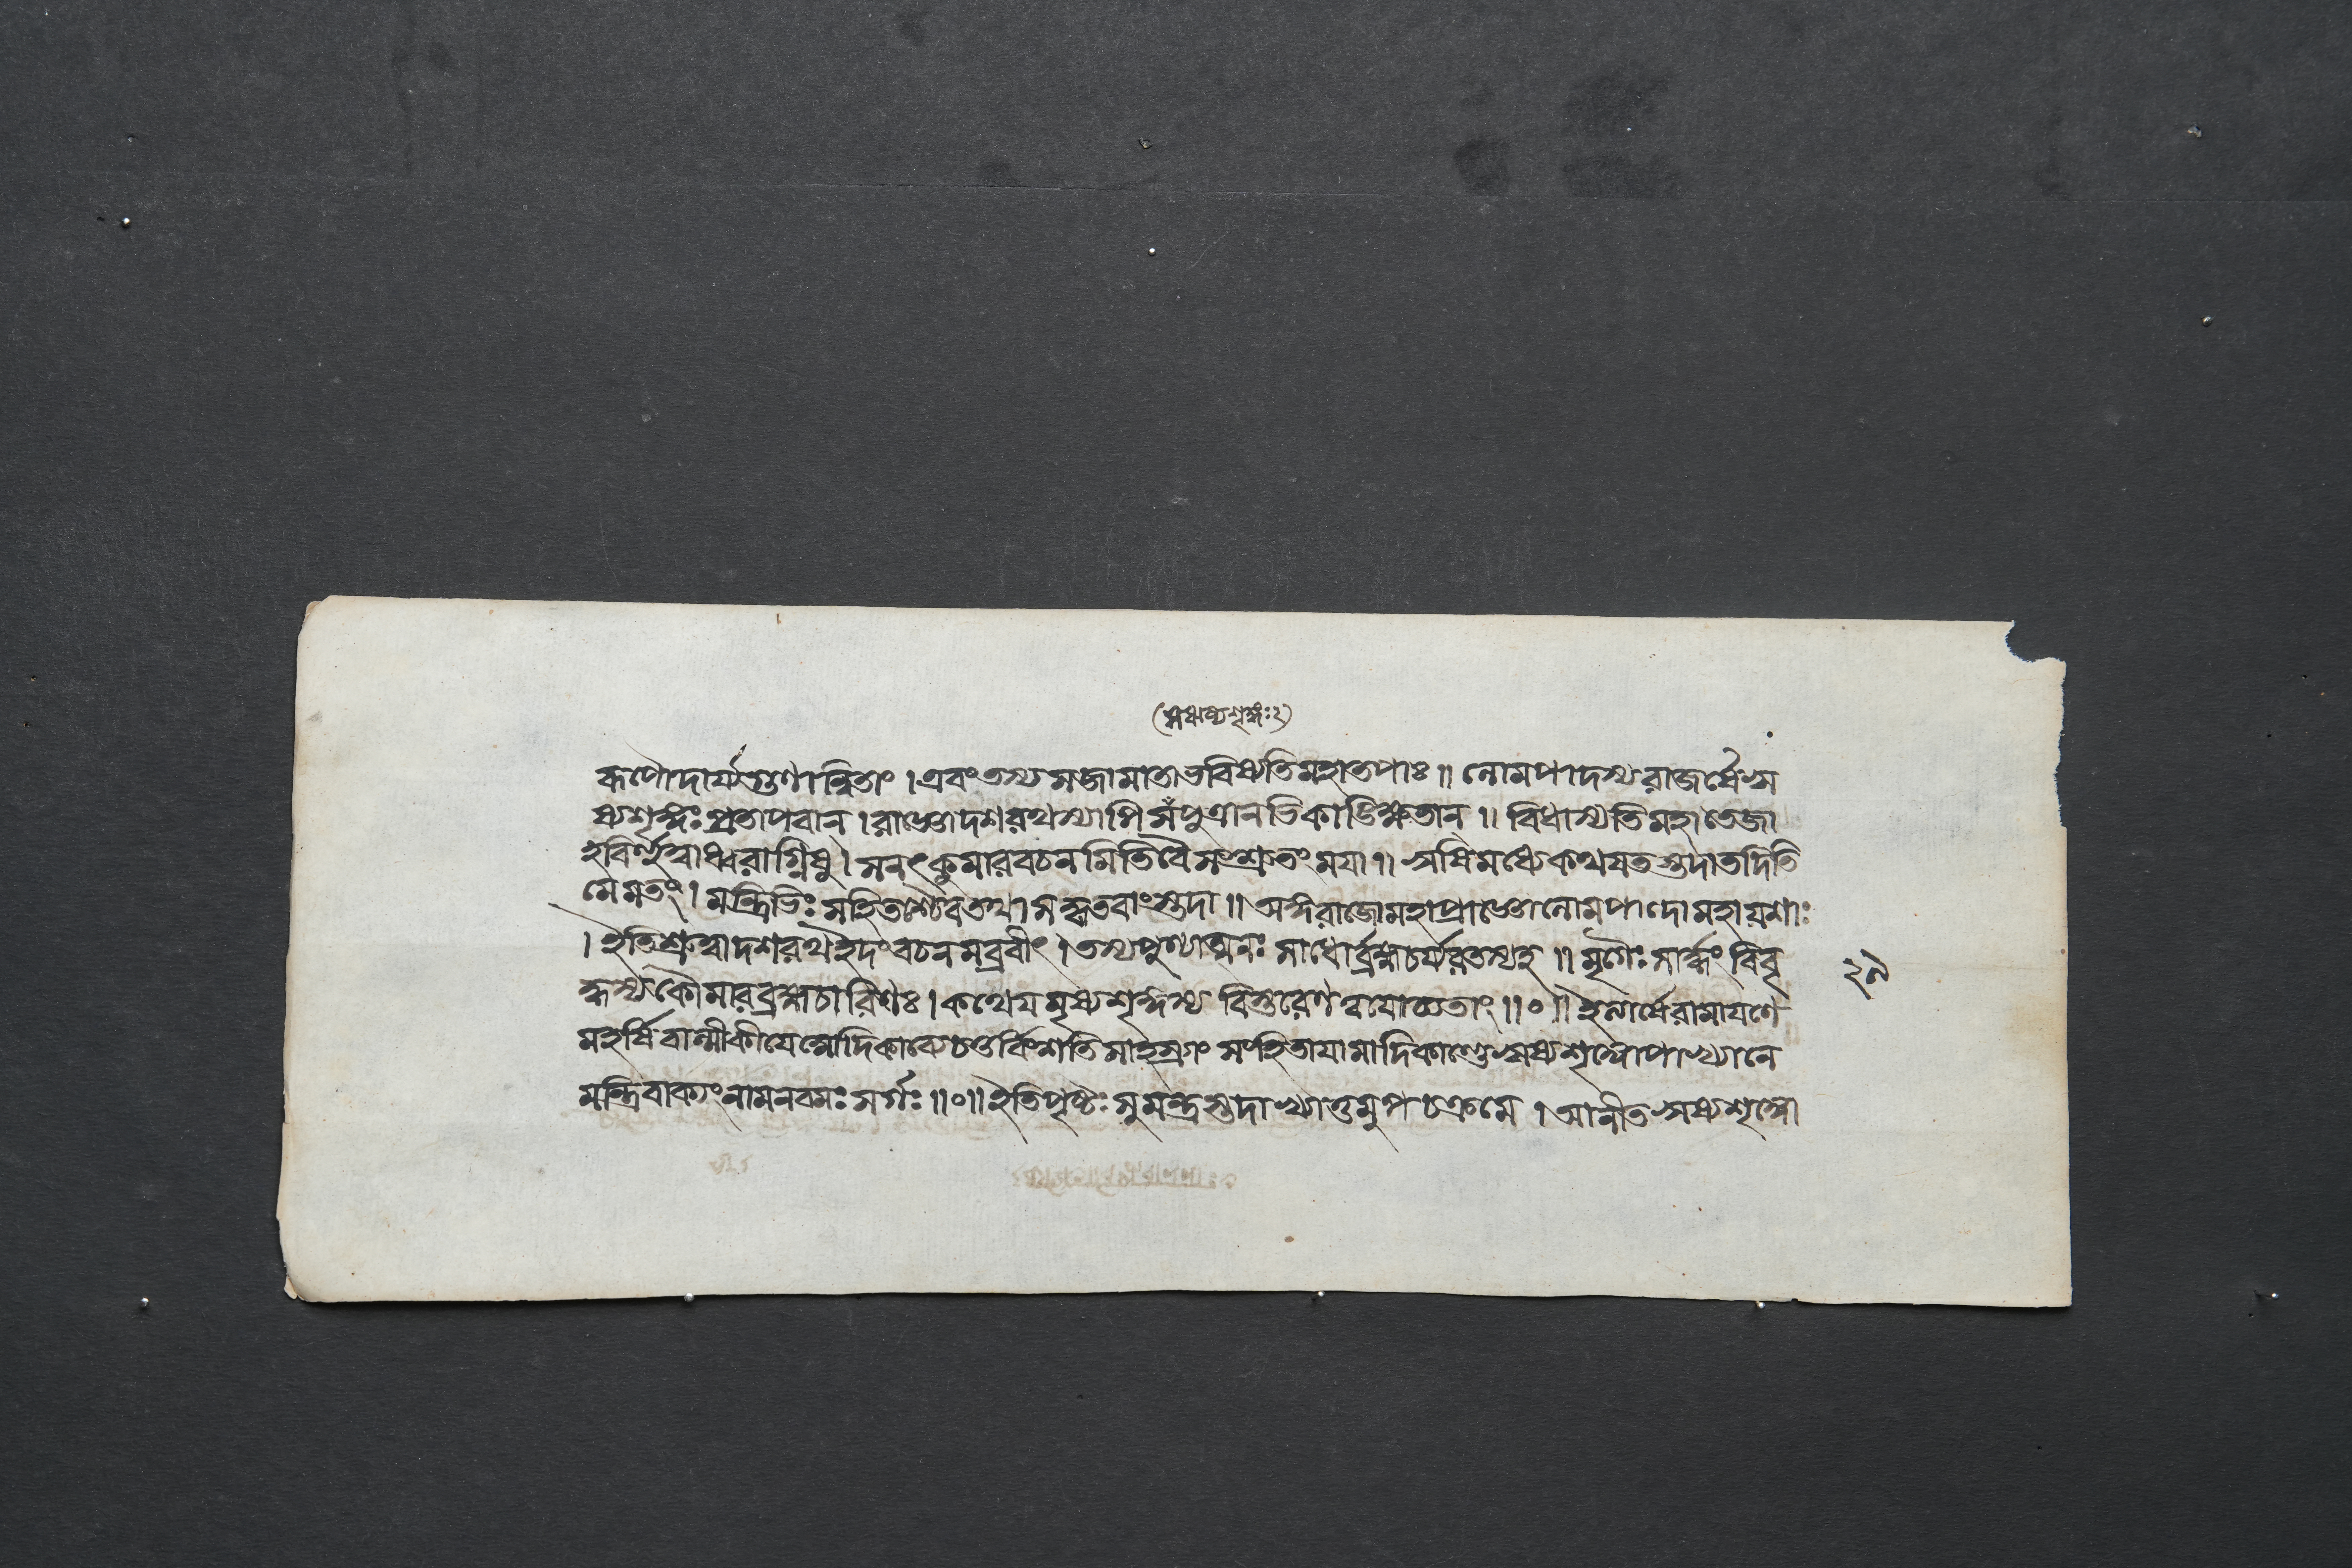 (ঋষ্যশৃঙ্গঃ২)
রূপৌদার্য্যগুণান্বিতাং । এবং তস্য স জামাতা ভবিষ্যতি মহাতপাঃ ॥ লোমপাদস্য রাজর্ষেঋ
ষ্যশৃঙ্গঃ প্রতাপবান্ । রাজ্ঞো দশরথস্যাপি স পুত্রানভিকাঙ্ক্ষিতান্ ॥ বিধাস্যতি মহাতেজা
হবির্হুত্বাধ্বরাগ্নিষু । সনৎকুমারবচনমিতি বৈ সংশ্রুতং ময়া ॥ ঋষিমধ্যে কথয়তস্তদা তদিতি
মে মতং । মন্ত্রিভিঃ সহিতশ্চৈব তথা সৎকৃতবাংস্তদা ॥ অঙ্গরাজো মহাপ্রাজ্ঞো লোমপাদো মহায়শাঃ
। ইতি শ্রুত্বা দশরথ ইদং বচনমব্রবীৎ । তস্য পুণ্যাত্মনঃ সাধোর্ব্রহ্মচর্য্যরতস্য হ ॥ মৃগৈঃ সার্দ্ধং বিবৃ
দ্ধস্য কৌমারব্রহ্মচারিণঃ । কথেয়মৃষ্যশৃঙ্গস্য বিস্তরেণ ত্বয়োচ্যতাং ॥০॥ ইত্যার্ষে রামায়ণে
মহর্ষিবাল্মীকীয়ে আদিকাব্যে চতুর্বিংশতিসাহস্র্যাং সংহিতায়ামাদিকাণ্ডে ঋষ্যশৃঙ্গোপাখ্যানে
মন্ত্রিবাক্যং নাম নবমঃ সর্গঃ ॥০॥ ইতি পৃষ্টঃ সুমন্ত্রস্তদাখ্যাতুমুপচক্রমে । আনীত ঋষ্যশৃঙ্গো
২৯